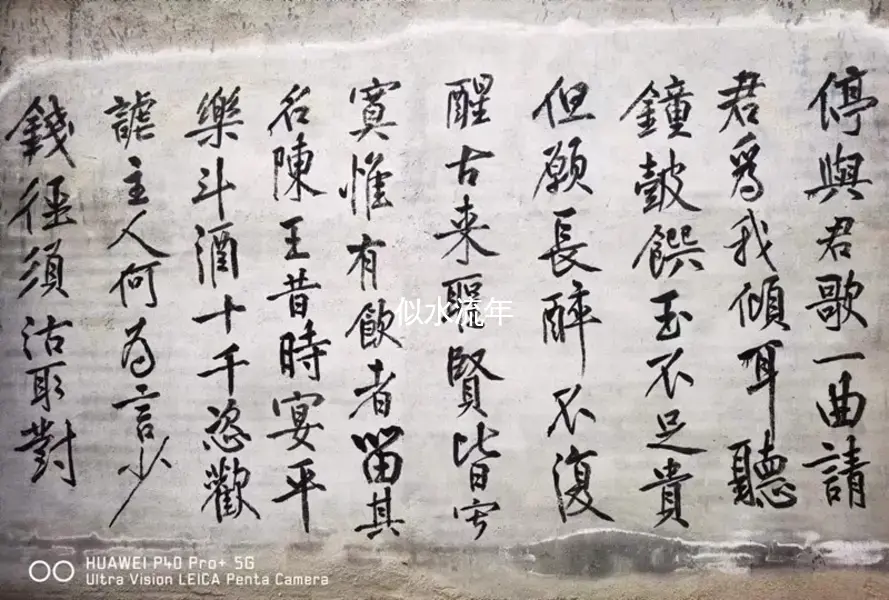 停與君歌一曲請
君爲我傾耳聽
鐘鼓饌玉不足貴
但願長醉不復
醒古来聖賢皆寂
寞惟有飲者留其
名陳王昔時宴平
樂斗酒十千恣歡
謔主人何为言少
錢徑須沽取對
似水流年
HUAWEI P40 Pro+ 5G
Ultra Vision LEICA Penta Camera